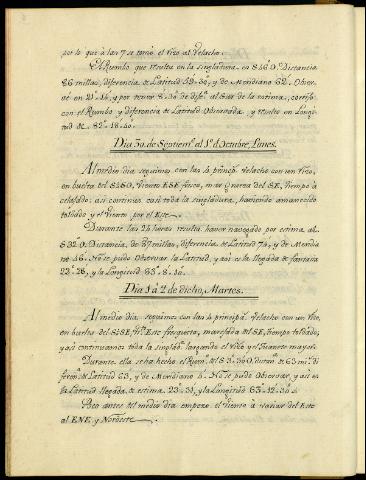 por lo que á las 7 se tomó el rizo al Velacho.
El Rumbo que resulta en la singladura en S 46 O. Distancia
86 millas, diferencia de Latitud 59-30, y de Meridiano 62. Obser-
vé en 21-14, y por tener 8-30 de difª al Sur de la estima, corrijo
con el Rumbo y diferencia de Latitud Observada, y resulto en Longi-
tud de 82-18-40.
Dia 30 de Septiemᵉ al 1º d Octubre, Lunes.
Al medio dia seguimos con las 4 princip. Velacho con un rizo,
en buelta del S¼SO, Viento ESE fresco, mar gruesa del SE, tiempo á
celajado: así continuó casi toda la singladura, haviendo amanecido
toldado y el Viento por el Este.
Durante las 24 horas resulta haver navegado por estima al
S 32 O. Distancia, de 87 millas, diferencia de Latitud 74, y de Meridia
no 46. No se pudo Observar la Latitud, y así es la llegada de fantasía
23-28, y la Longitud 83-8-10.
Dia 1 á 2 de dicho, Martes.
Al medio dia, seguimos con las 4 principaˢ Velacho con un rizo,
en buelta del S¼SE, Vtº Este fresquito, marejada del SE, tiempo toldado,
y así continuamos toda la singladª largando el rizo y el Juanete mayor.
Durante ella se ha hecho el Rumº del S 3-30 O, distª de 63 milˢ di
ferenª de Latitud 63, y de Meridiano 4. No se pudo Observar, y así es
la Latitud llegada de estima 23-31, y la Longitud 83-12-30.
Poco antes del medio dia empezó el viento á variar del Este
al ENE, y Nordeste.